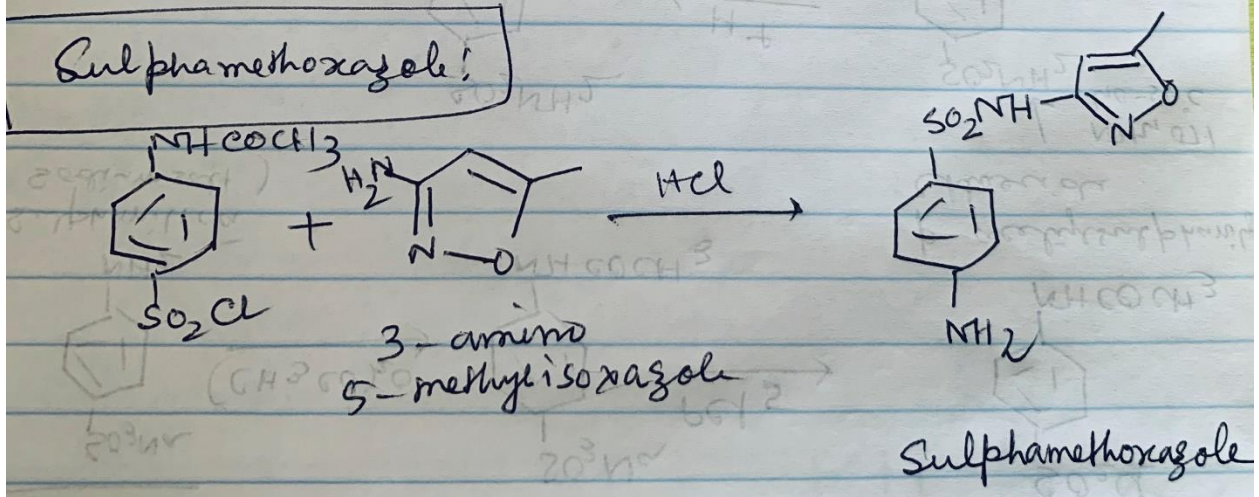 Sulphamethoxazole:
NHCOCH3
SO2Cl
+
H2N
N
O
3-amino
5-methylisoxazole
HCl
SO2NH
N
O
NH2
Sulphamethoxazole